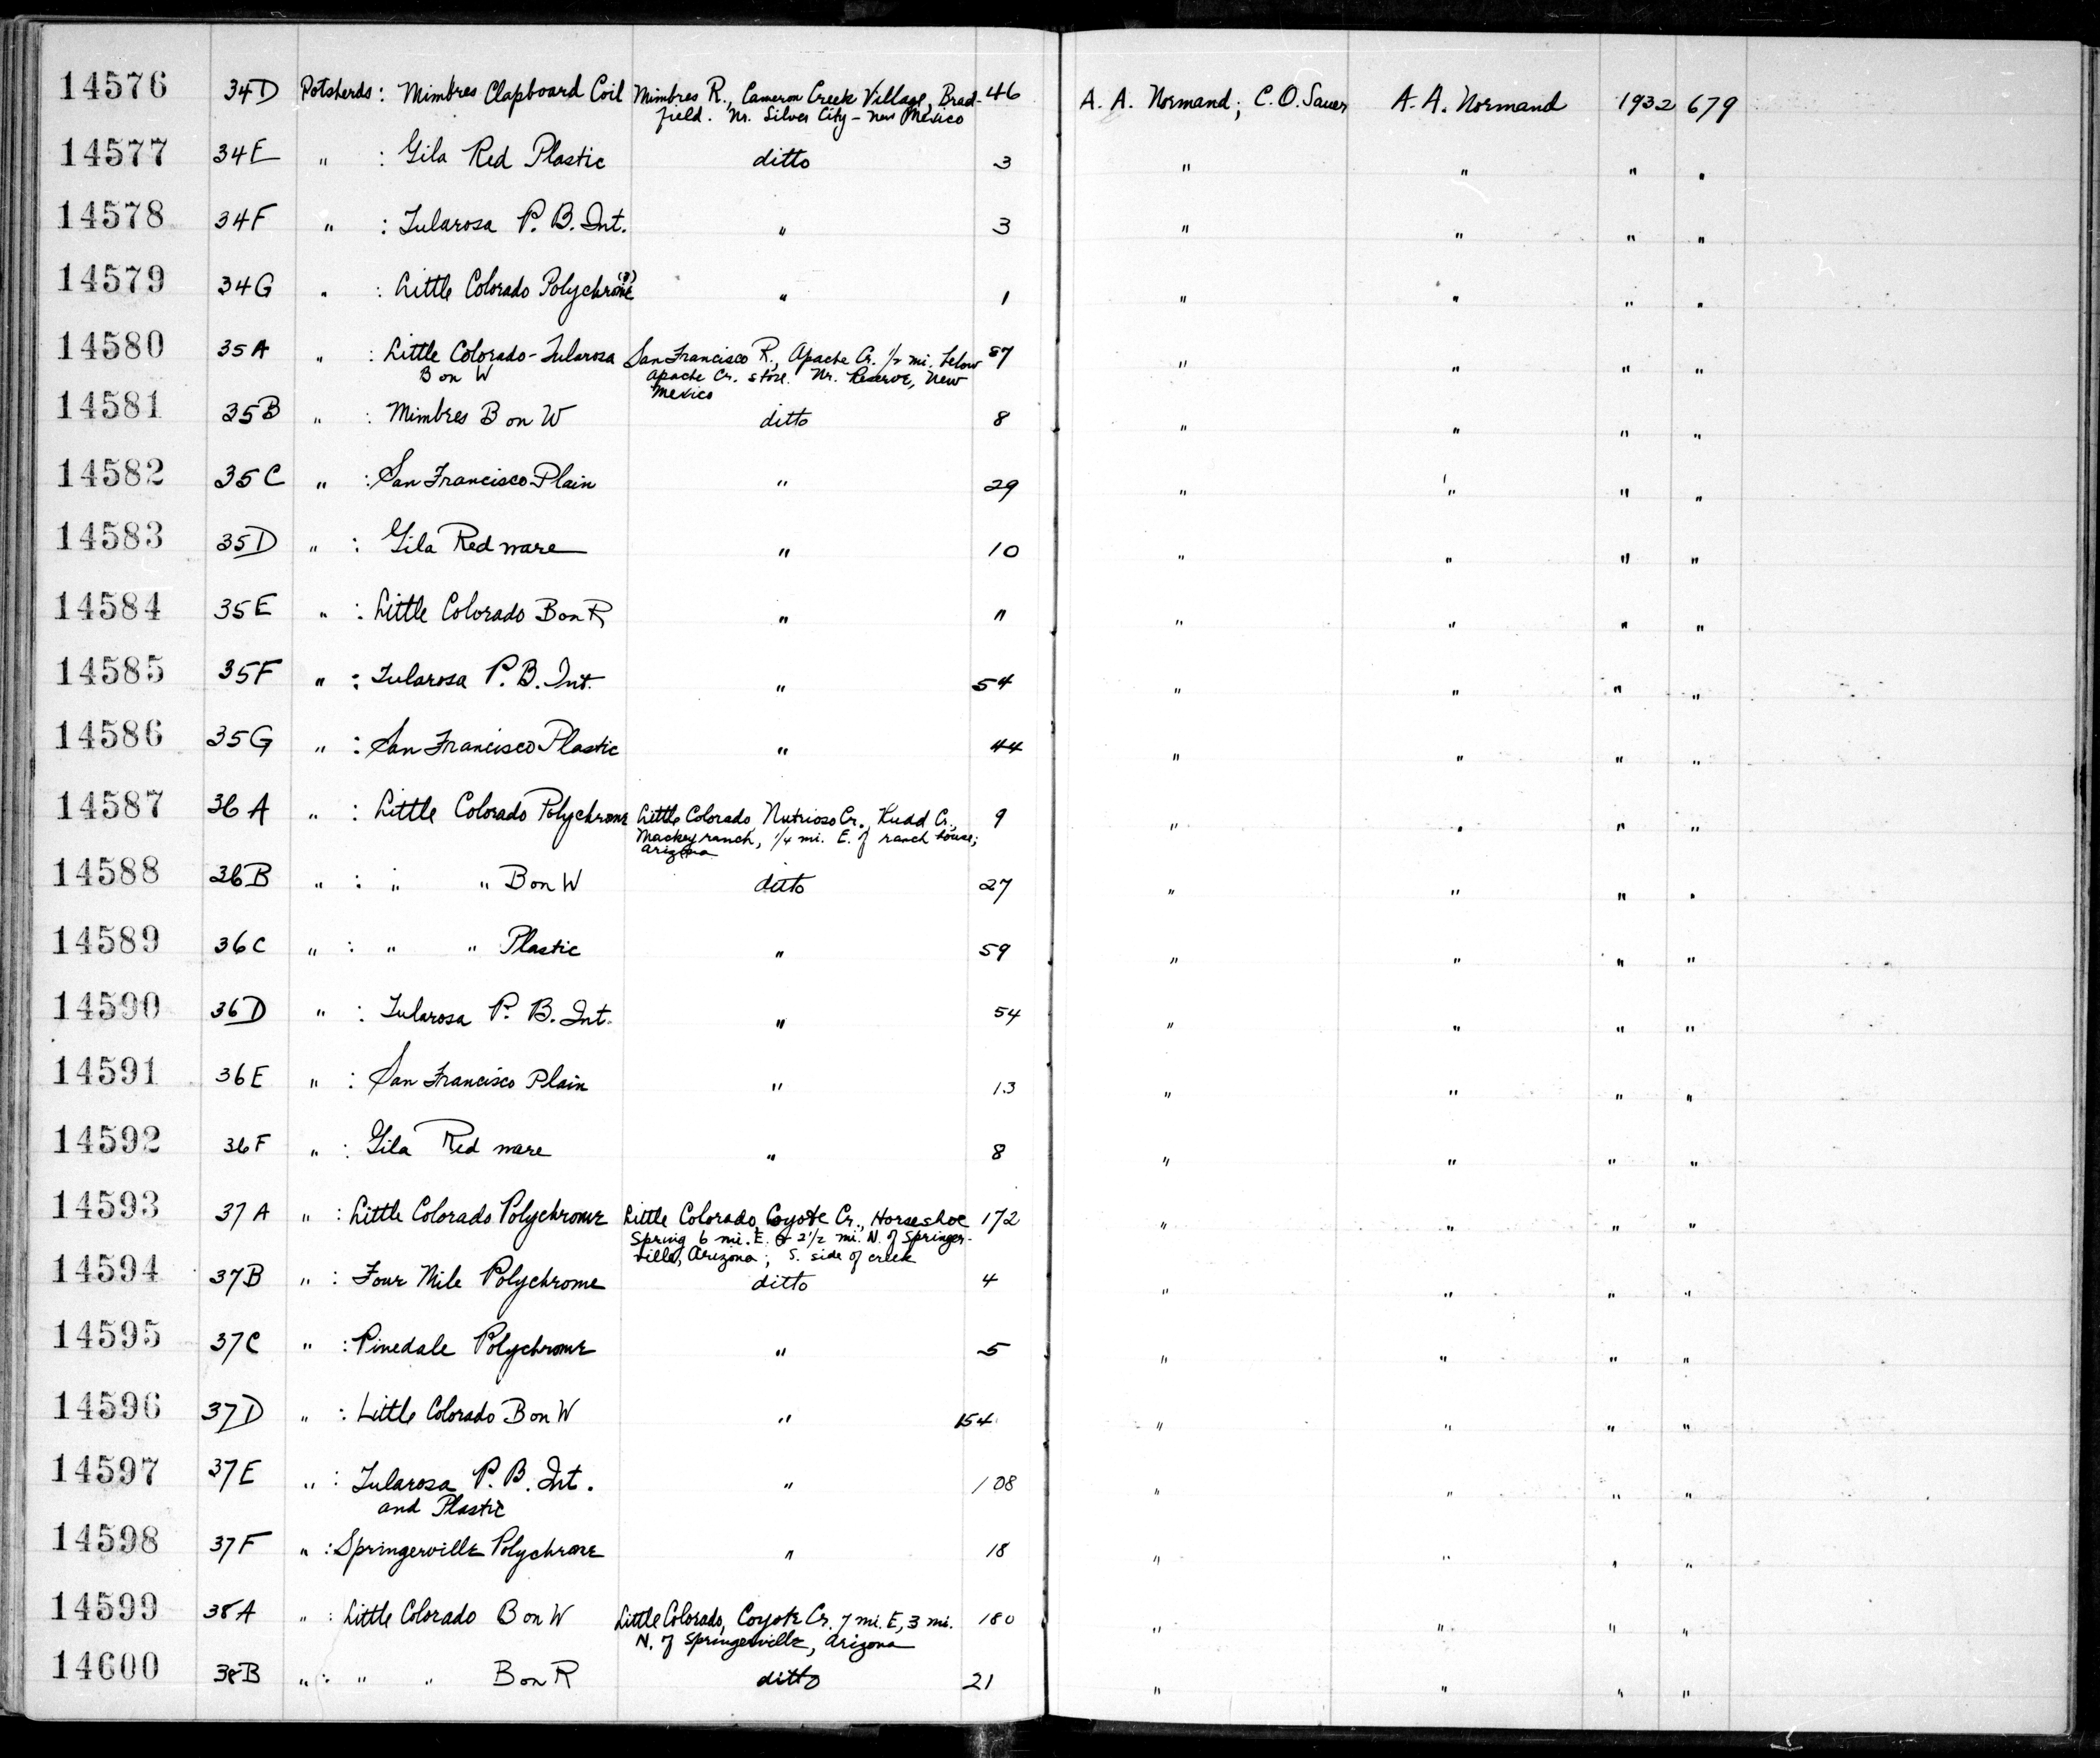 14576 34D Potsherds: Mimbres Clapboard Coil Mimbres R., Cameron Creek Village, Brad- 46 A. A. Normand; C. O. Sauer A. A. Normand 1932 679
field. Nr. Silver City - New Mexico
14577 34E " : Gila Red Plastic ditto 3 " " " "
14578 34F " : Tularosa P. B. Int. " 3 " " " "
14579 34G " : Little Colorado Polychrome (?) " 1 " " " "
14580 35A " : Little Colorado-Tularosa San Francisco R., Apache Cr. 1/2 mi. below 87 " " " "
B on W Apache Cr. store. Nr. Reserve, New
Mexico
14581 35B " : Mimbres B on W ditto 8 " " " "
14582 35C " : San Francisco Plain " 29 " " " "
14583 35D " : Gila Red ware " 10 " " " "
14584 35E " : Little Colorado B on R " " " " " "
14585 35F " : Tularosa P. B. Int. " 54 " " " "
14586 35G " : San Francisco Plastic " 44 " " " "
14587 36A " : Little Colorado Polychrome Little Colorado Nutrioso Cr., Rudd Cr., 9 " " " "
Mackey ranch, 1/4 mi. E. of ranch house;
Arizona
14588 36B " : " " B on W ditto 27 " " " "
14589 36C " : " " Plastic " 59 " " " "
14590 36D " : Tularosa P. B. Int. " 54 " " " "
14591 36E " : San Francisco Plain " 13 " " " "
14592 36F " : Gila Red ware " 8 " " " "
14593 37A " : Little Colorado Polychrome Little Colorado, Coyote Cr., Horseshoe 172 " " " "
Spring 6 mi. E. & 2 1/2 mi. N. of Springer-
ville, Arizona; S. side of creek
14594 37B " : Four Mile Polychrome ditto 4 " " " "
14595 37C " : Pinedale Polychrome " 5 " " " "
14596 37D " : Little Colorado B on W " 154 " " " "
14597 37E " : Tularosa P. B. Int. " 108 " " " "
and Plastic
14598 37F " : Springerville Polychrome " 18 " " " "
14599 38A " : Little Colorado B on W Little Colorado, Coyote Cr. 7 mi. E, 3 mi. 180 " " " "
N. of Springerville, Arizona
14600 38B " : " " B on R ditto 21 " " " "